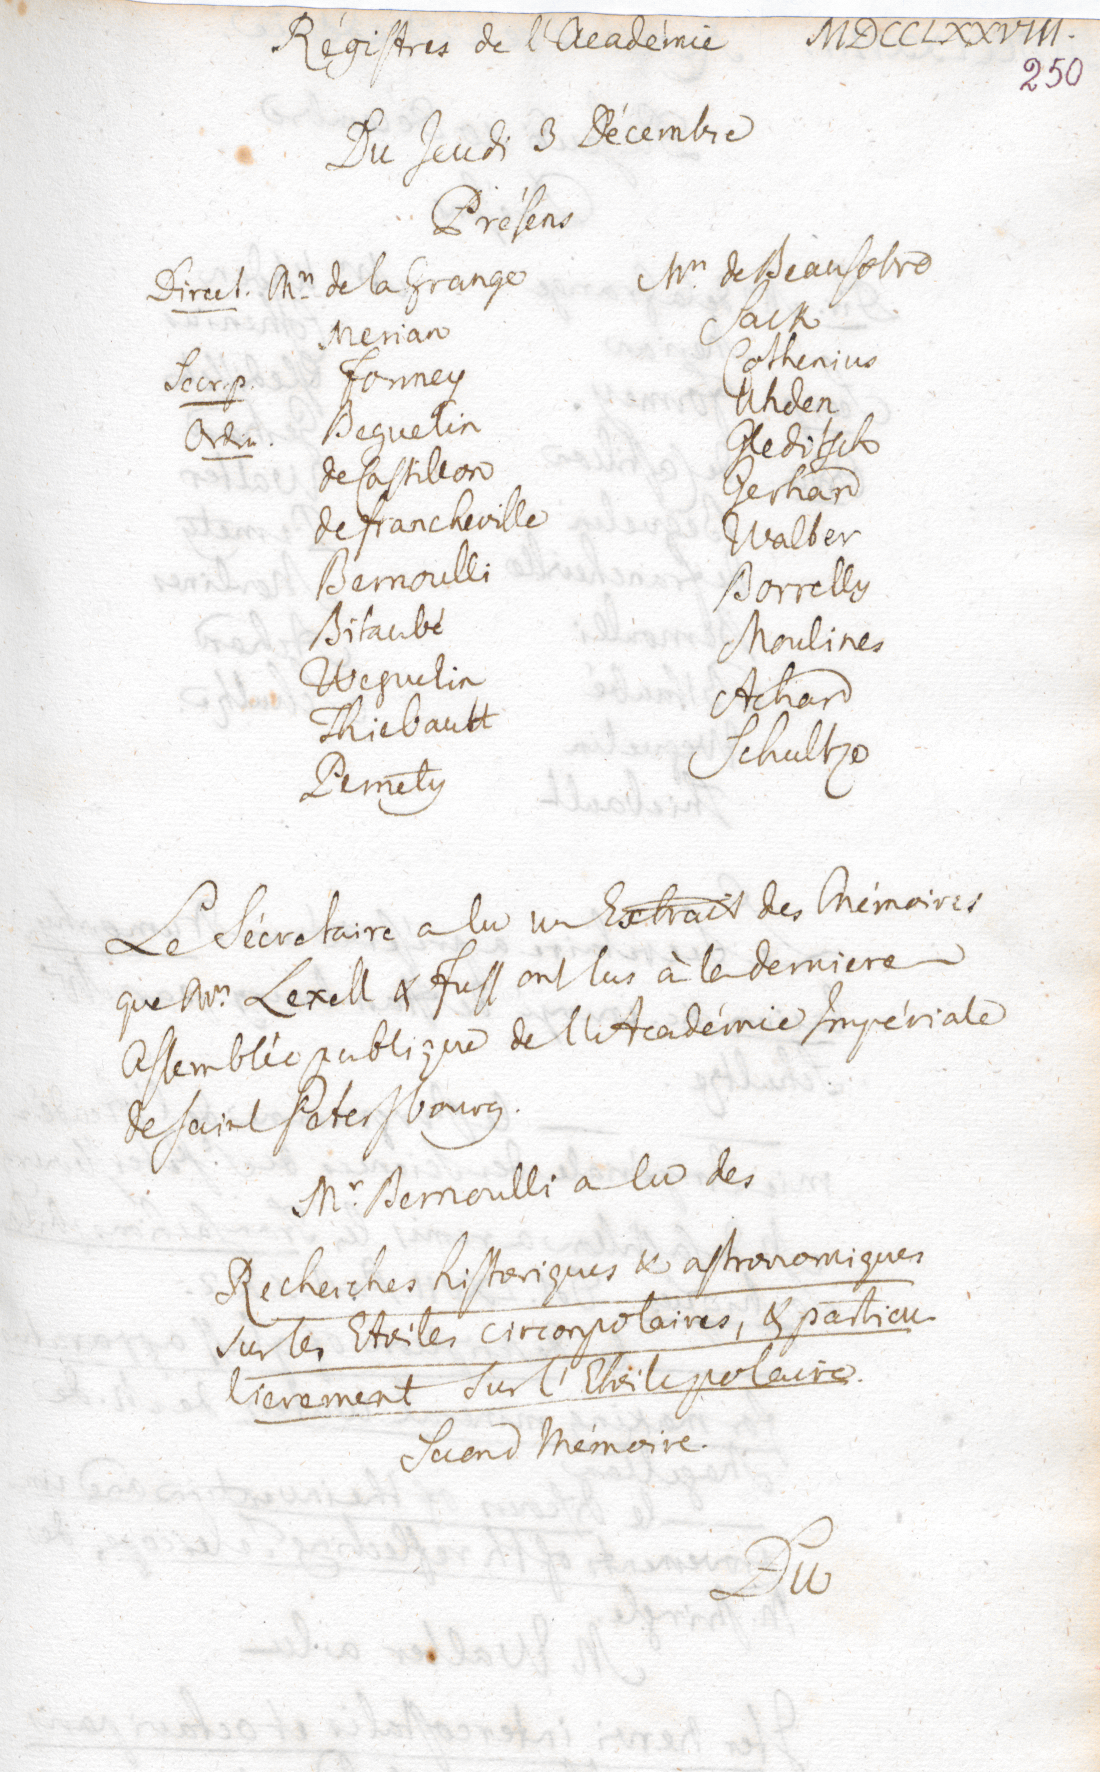 Régistres de l'Académie MDCCLXXVIII.
250
Du Jeudi 3 Décembre
Présens
Direct. Mrs de la Grange
Merian
Secr.p. Formey
Ordin. Beguelin
de Castillon
de francheville
Bernoulli
Bitaubé
Weguelin
Thiebault
Pernety
Mrs de Beausobre
Sack
Cothenius
Uhden
Gleditsch
Gerhard
Walter
Borrelly
Moulines
Achard
Schultze
Le Sécretaire a lu un Extrait des Mémoires
que Mrs Lexell & Fuss ont lus à la derniere
Assemblée publique de l'Académie Impériale
de Saint Petersbourg.
Mr. Bernoulli a lu des
Recherches historiques & astronomiques
sur les Etoiles circonpolaires, & particu
lierement sur l'Etoile polaire.
Second Mémoire.
Du